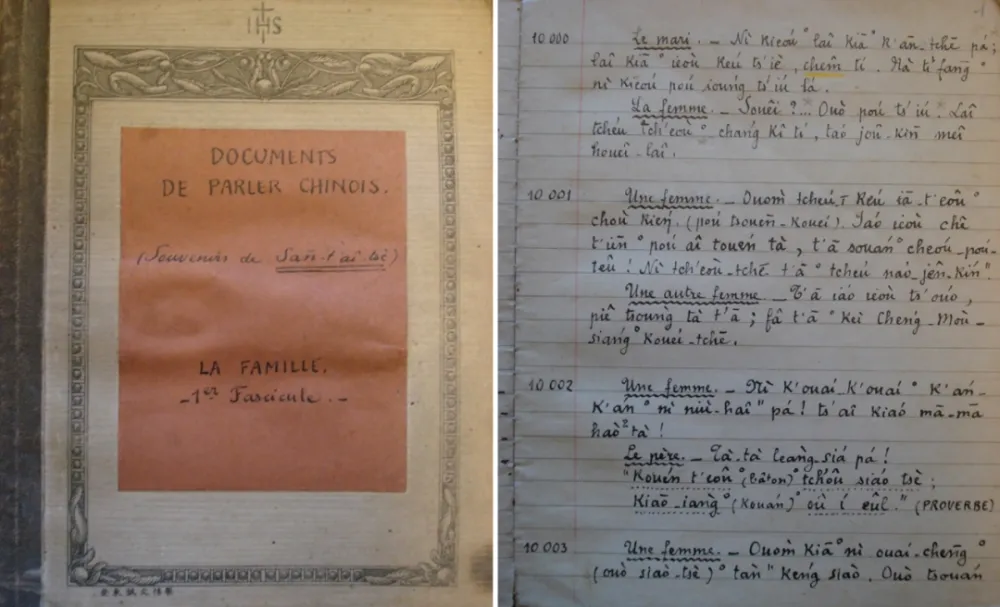 IHS
DOCUMENTS
DE PARLER CHINOIS.
(Souvenirs de San-t'ai tsè)
LA FAMILLE.
-1er Fascicule.-
10.000 Le mari. — Nì kieoú° laî Kiā° k'ān-tchē pá;
laî Kiā° ieòu Keú ts'iè, chem̄ tí. Nà tí fang°
nì Kieoú poú ioung ts'iú tà.
La femme. — Soueî?... Ouò poú ts'iú. Laî
tcheú tch'eoù° chang Kî tí, taó joû-Kin̄ meî
houeî-laî.
10.001 Une femme. — Ouom̀ tcheú-т Keú iā-t'eoû°
choù Kień. (poú tsouen̄-Kouei). Iaó ieoù chē
t'iñ° poú aî touen tà, t'ā souań° cheoú-poú-
teū! Nì tch'eoù-tchē t'ā° tcheú naó-jên-Kiń".
Une autre femme. — T'ā iaó ieoù ts'ouó,
piē tsoung tà t'ā; fâ t'ā° Keì Cheng-Moù-
siang° Kouei-tchē.
10.002 Une femme. — Nì K'ouaí-K'ouaí° K'ań-
K'ań° nì niù-haî" pá! ts'aî Kiaó mā-mā
haò² tà!
Le père. — Tà-tà leang-siá pá!
"Kouén t'eoû° (bâton)° tchôu siáo tsè;
Kiaō-iang° (Kouán)° où í eûl." (PROVERBE)
10.003 Une femme. — Ouom̀ Kiā° nì ouai-cheng°
(ouò siaò-tsè)° tań" Keng siaò. Ouò tsouań